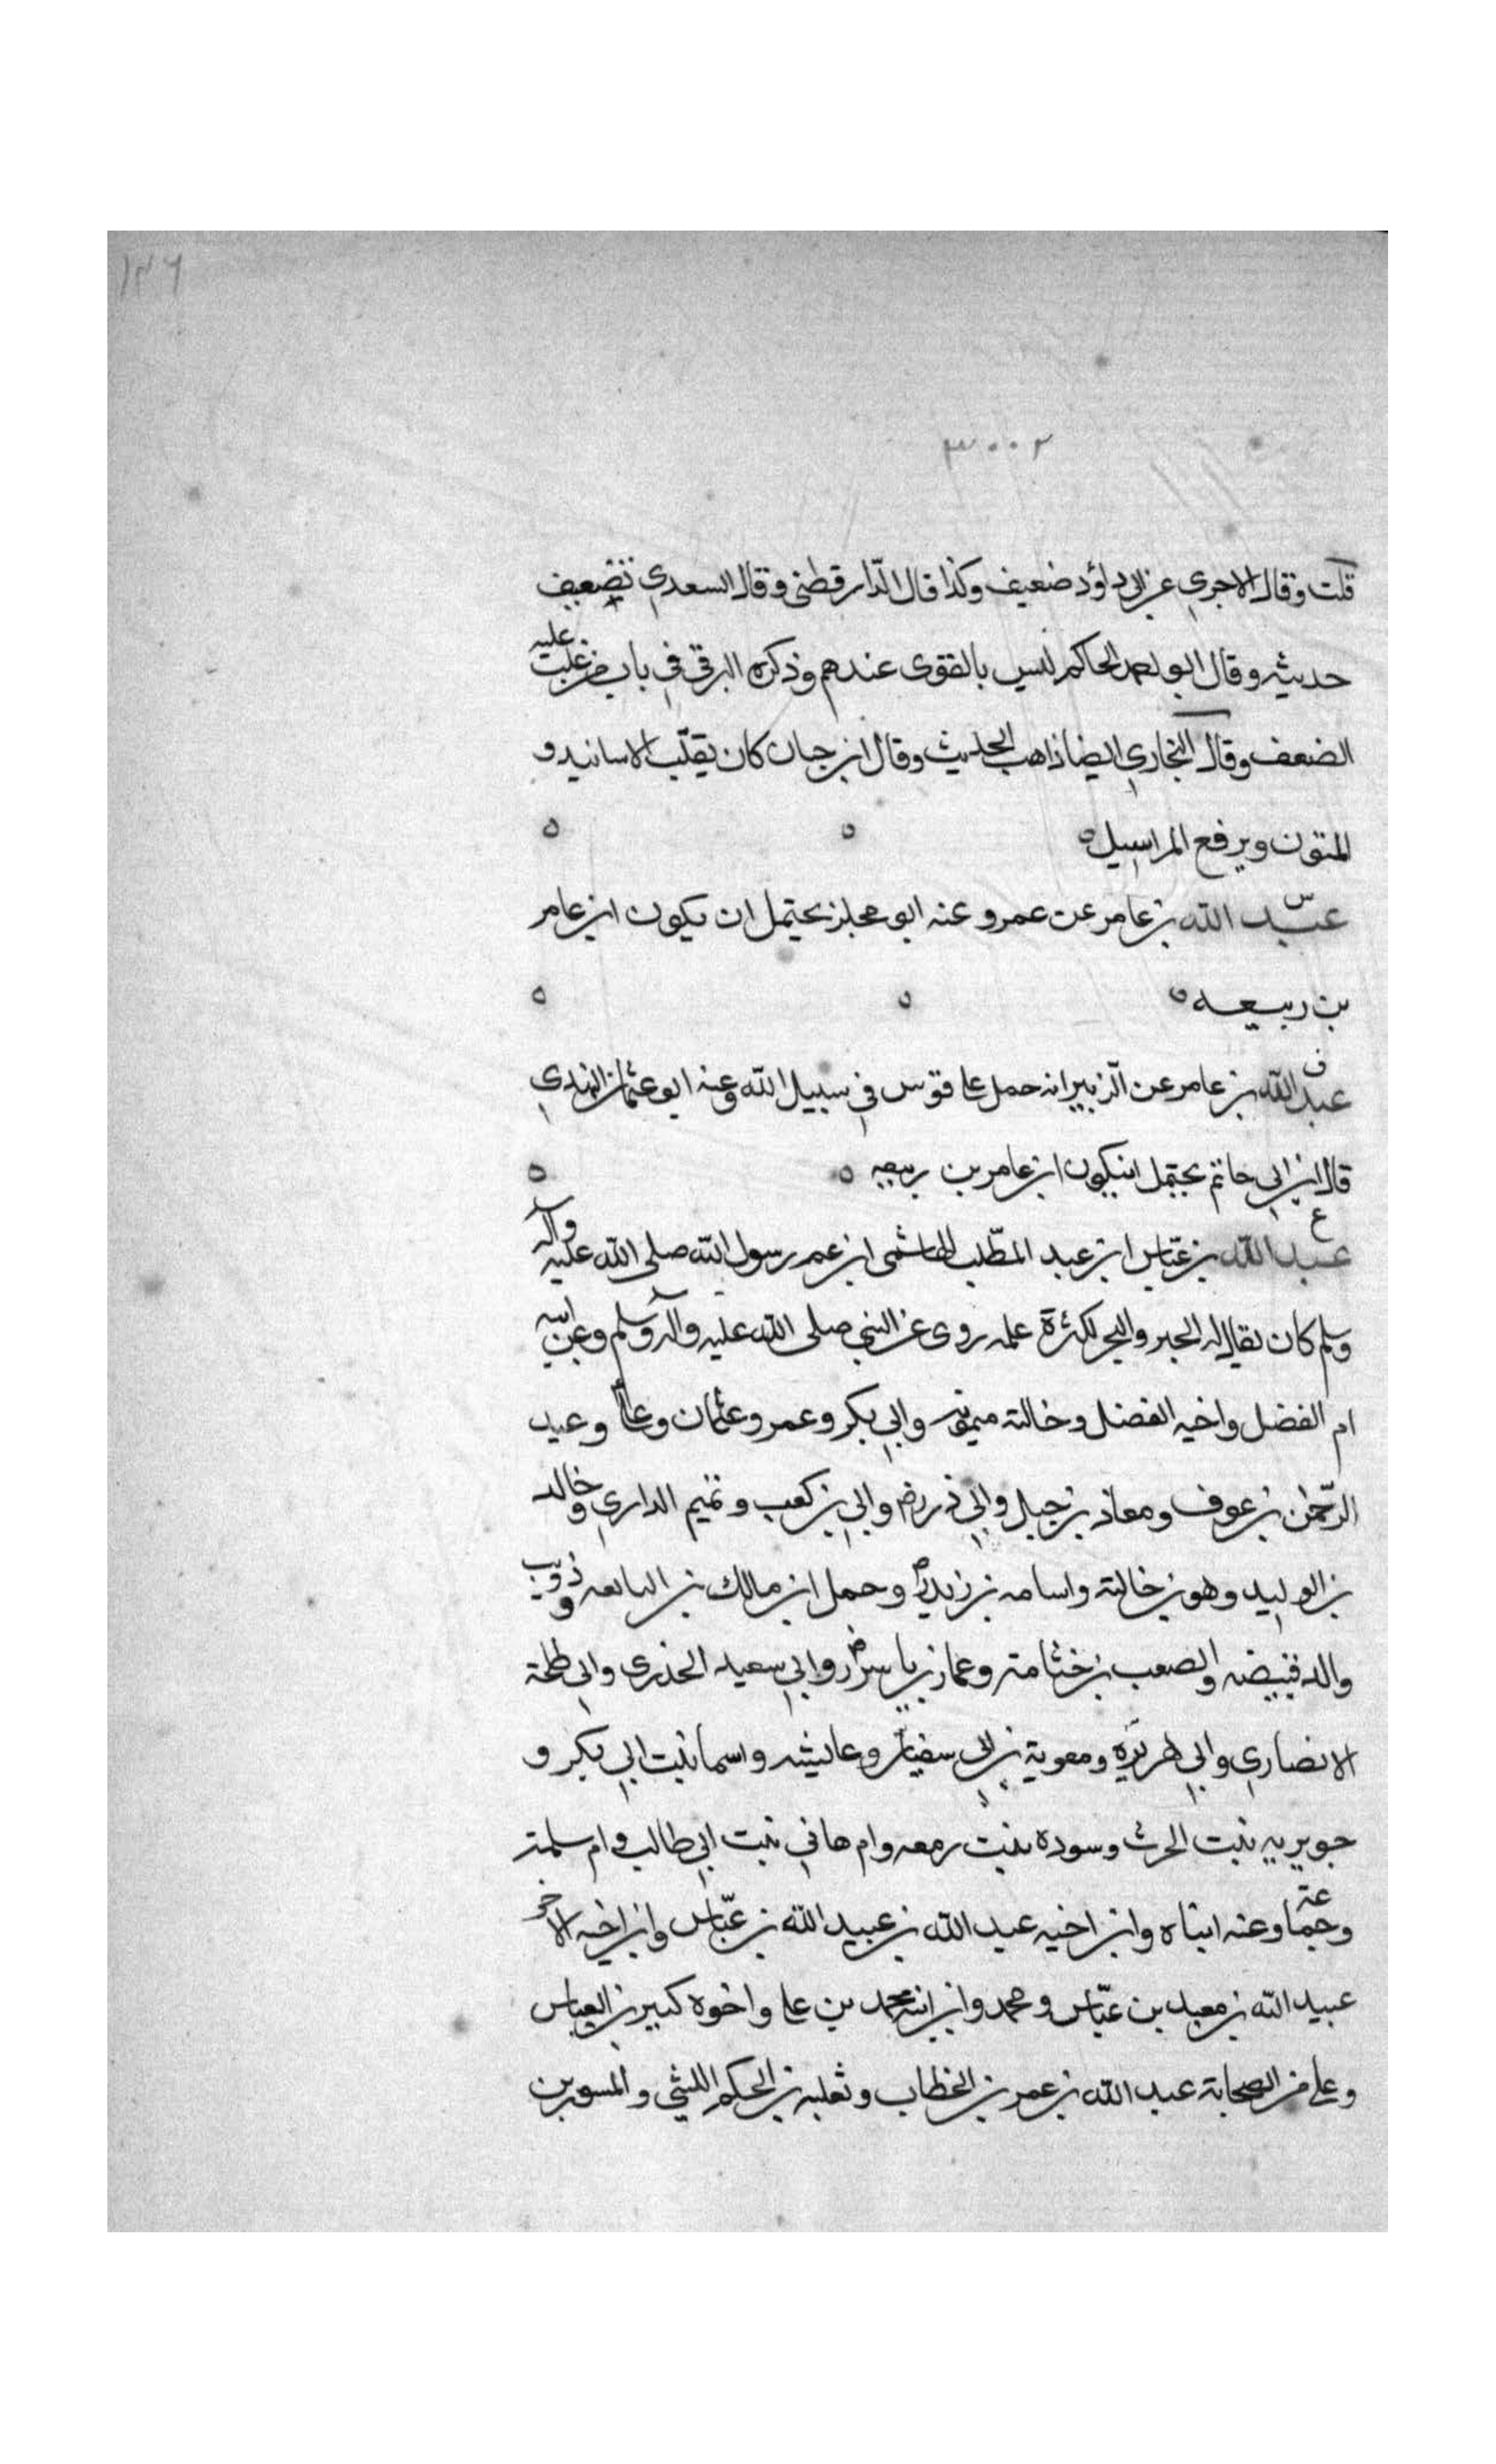 ١٢٦
٣٠٠٢
قلت وقال الاجري عن ابي داؤد ضعيف وكذا قال الدّارقطنى وقال السعدي تضعيف
حديثه وقال ابو احمد الحاكم ليس بالقوى عندهم وذكره البرقي في باب من غلبت عليه
الضعف وقال البخاري ايضا ذاهب الحديث وقال ابن حبان كان يقلّب الاسانيد و
المتون ويرفع المراسيل ه ه ه
س
عبد الله بن عامر عن عمرو عنه ابو مجلز يحتمل ان يكون ابن عامر
بن ربيعه ه ه ه
ف
عبد الله بن عامر عن الزّبير انه حمل على قوس في سبيل الله وعنه ابو عثمان النهدي
قال ابن ابي حاتم يحتمل انيكون ابن عامر بن ربيعه ه ه
ع
عبد الله بن عبّاس ابن عبد المطّلب الهاشمى ابن عم رسول الله صلى الله عليه وآله
وسلم كان يقال له الحبر والبحر لكثرة علمه روى عن النبي صلى الله عليه وآله وسلم وعن ابيه
ام الفضل واخيه الفضل وخالته ميمونه وابي بكر وعمر وعثمان وعلي وعبد
الرّحمن بن عوف ومعاذ بن جبل وابي ذر رض وابي بن كعب وتميم الداري وخالد
بن الوليد وهو بن خالته واسامه بن زيد رض وحمل ابن مالك بن النابعه وذويب
والد قبيضه والصعب بن خثامة وعمار بن ياسر رض وابي سعيد الخذرى وابي طلحة
الانصاري وابي هريره ومعوية بن ابى سفيان وعايشه واسما بنت ابي بكر و
جويريه بنت الحرث وسوده بنت رمعه وام هاني بنت ابي طالب وام سلمة
وجمّاعة وعنه ابناه وابن اخيه عبد الله بن عبيد الله بن عبّاس وابن اخيه الاخر
عبيد الله بن معبد بن عبّاس ومحمد وابن ابنه محمد بن على واخوه كبير بن العباس
وعلى من الصحابة عبد الله بن عمر بن الخطاب وثعلبه بن الحكم الليثي والمسور بن